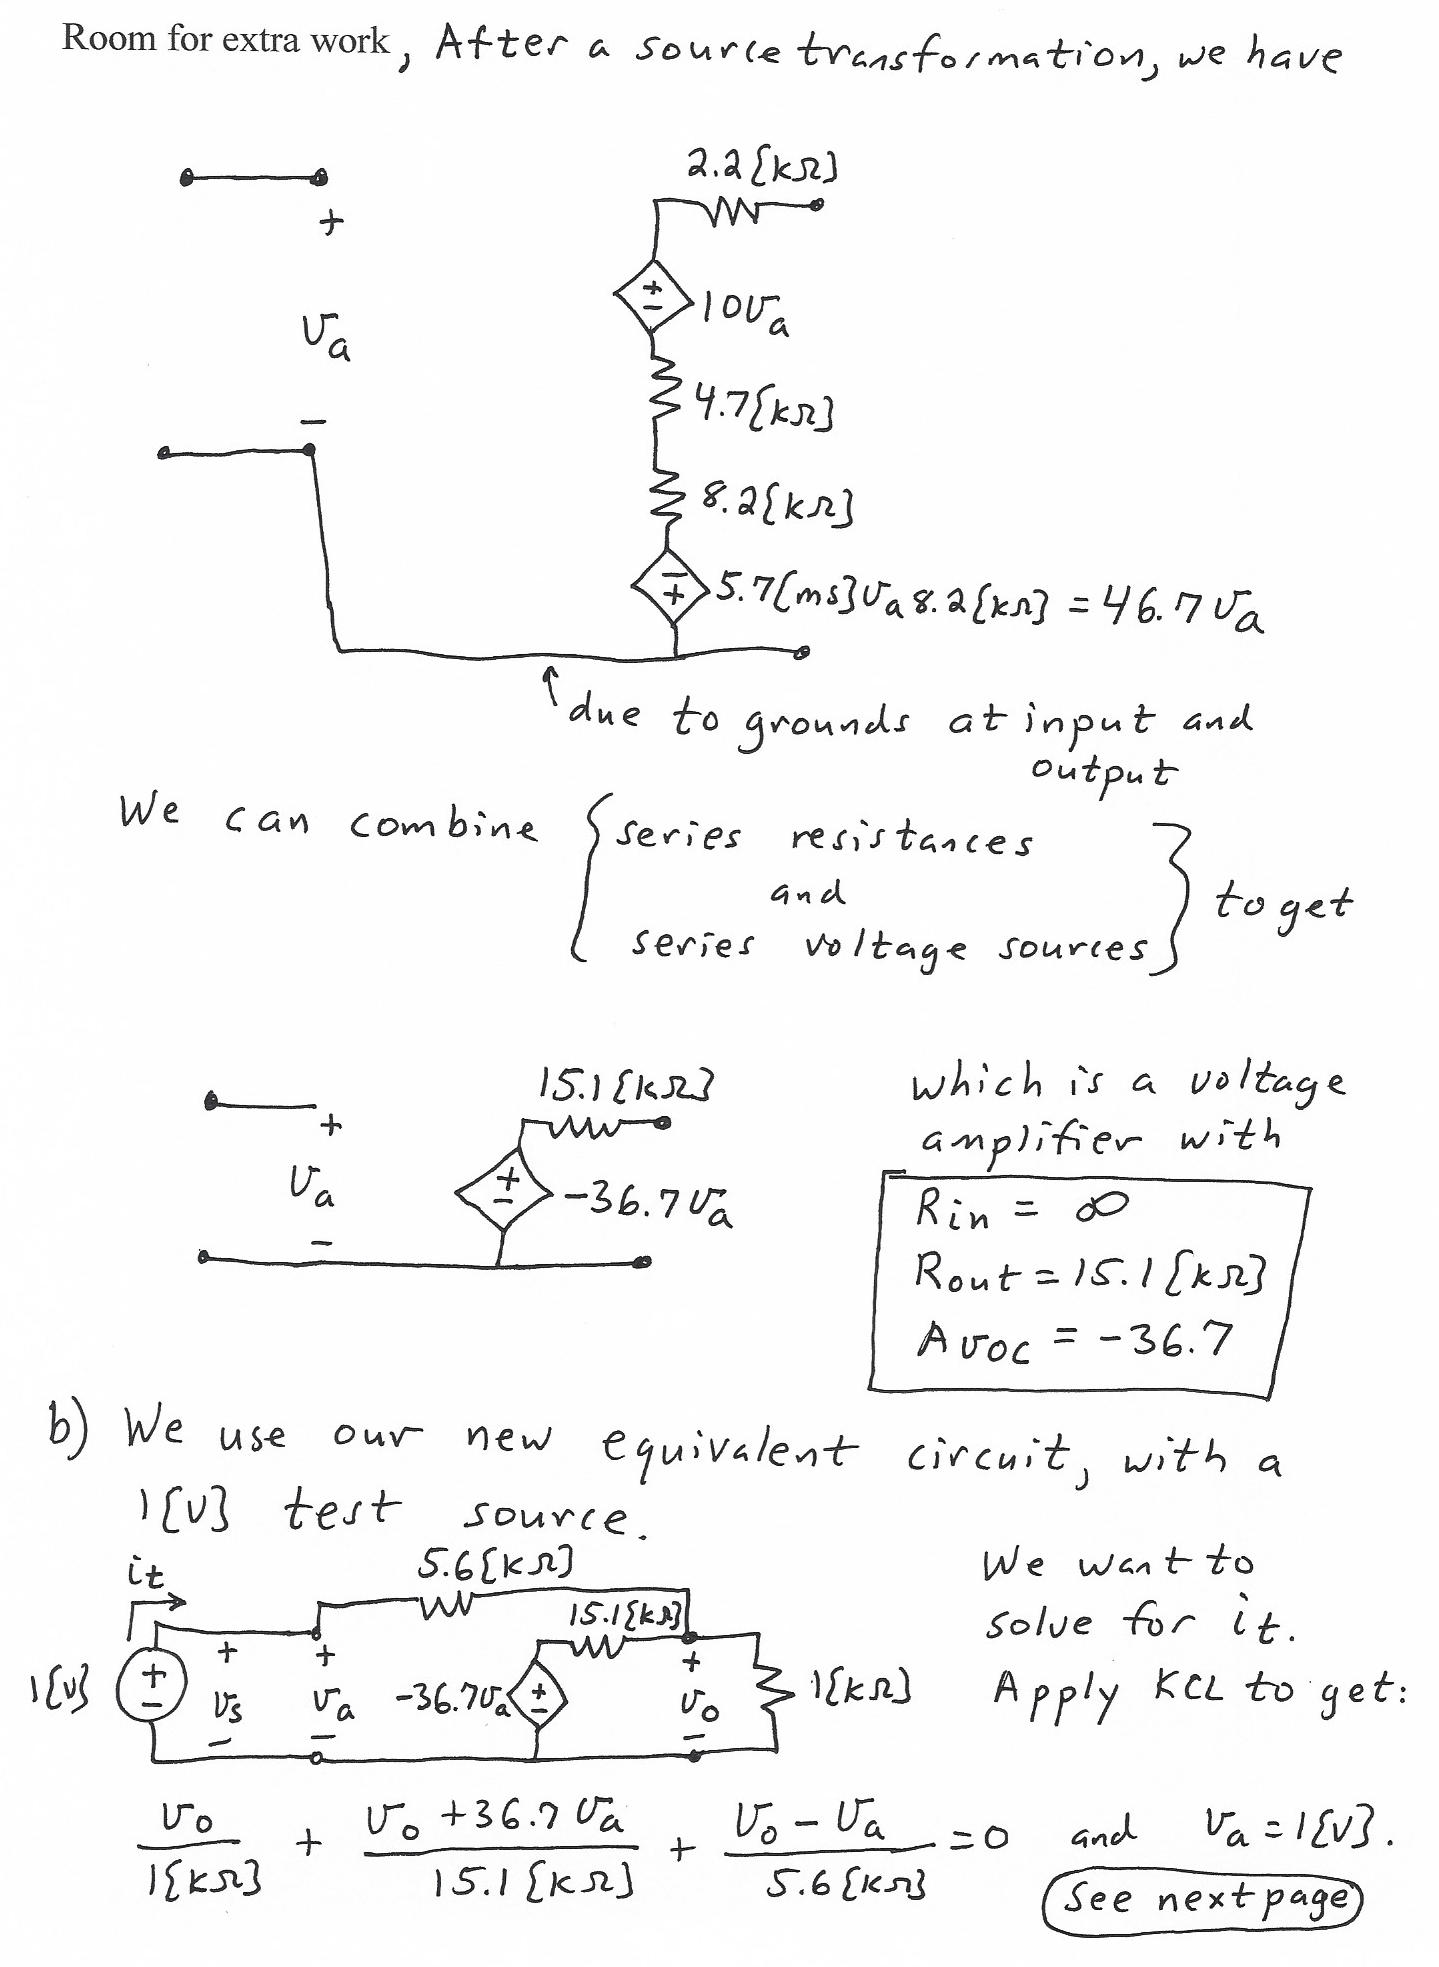 Room for extra work, After a source transformation, we have
2.2[kΩ]
+
+
-
10va
va
4.7[kΩ]
-
8.2[kΩ]
-
+
5.7[ms]va 8.2[kΩ] = 46.7 va
↑ due to grounds at input and
output
We can combine { series resistances
and
series voltage sources } to get
15.1[kΩ]
+
va
-
+
-
-36.7 va
which is a voltage
amplifier with
Rin = ∞
Rout = 15.1[kΩ]
Avoc = -36.7
b) We use our new equivalent circuit, with a
1[v] test source.
it
5.6[kΩ]
15.1[kΩ]
1[v]
+
-
+
vs
-
+
va
-
-36.7va
+
-
+
vo
-
1[kΩ]
We want to
solve for it.
Apply KCL to get:
vo/1[kΩ] + vo +36.7 va/15.1[kΩ] + vo - va/5.6[kΩ] = 0 and va = 1[v].
See next page